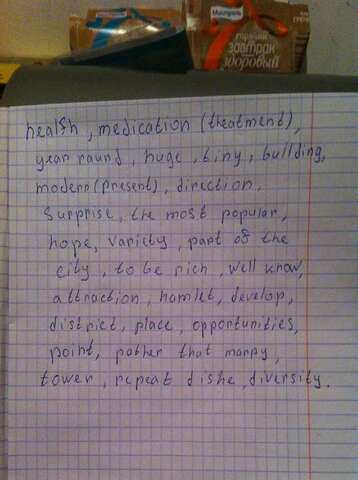 Myllyn Paras
горячий
завтрак
здоровый
health, medication (treatment),
year round, huge, tiny, building,
modern (present), direction,
surprise, the most popular,
hope, variety, part of the
city, to be rich, well know,
attraction, hamlet, develop,
district, place, opportunities,
point, pather that marry,
tower, repeat dishe, diversity.